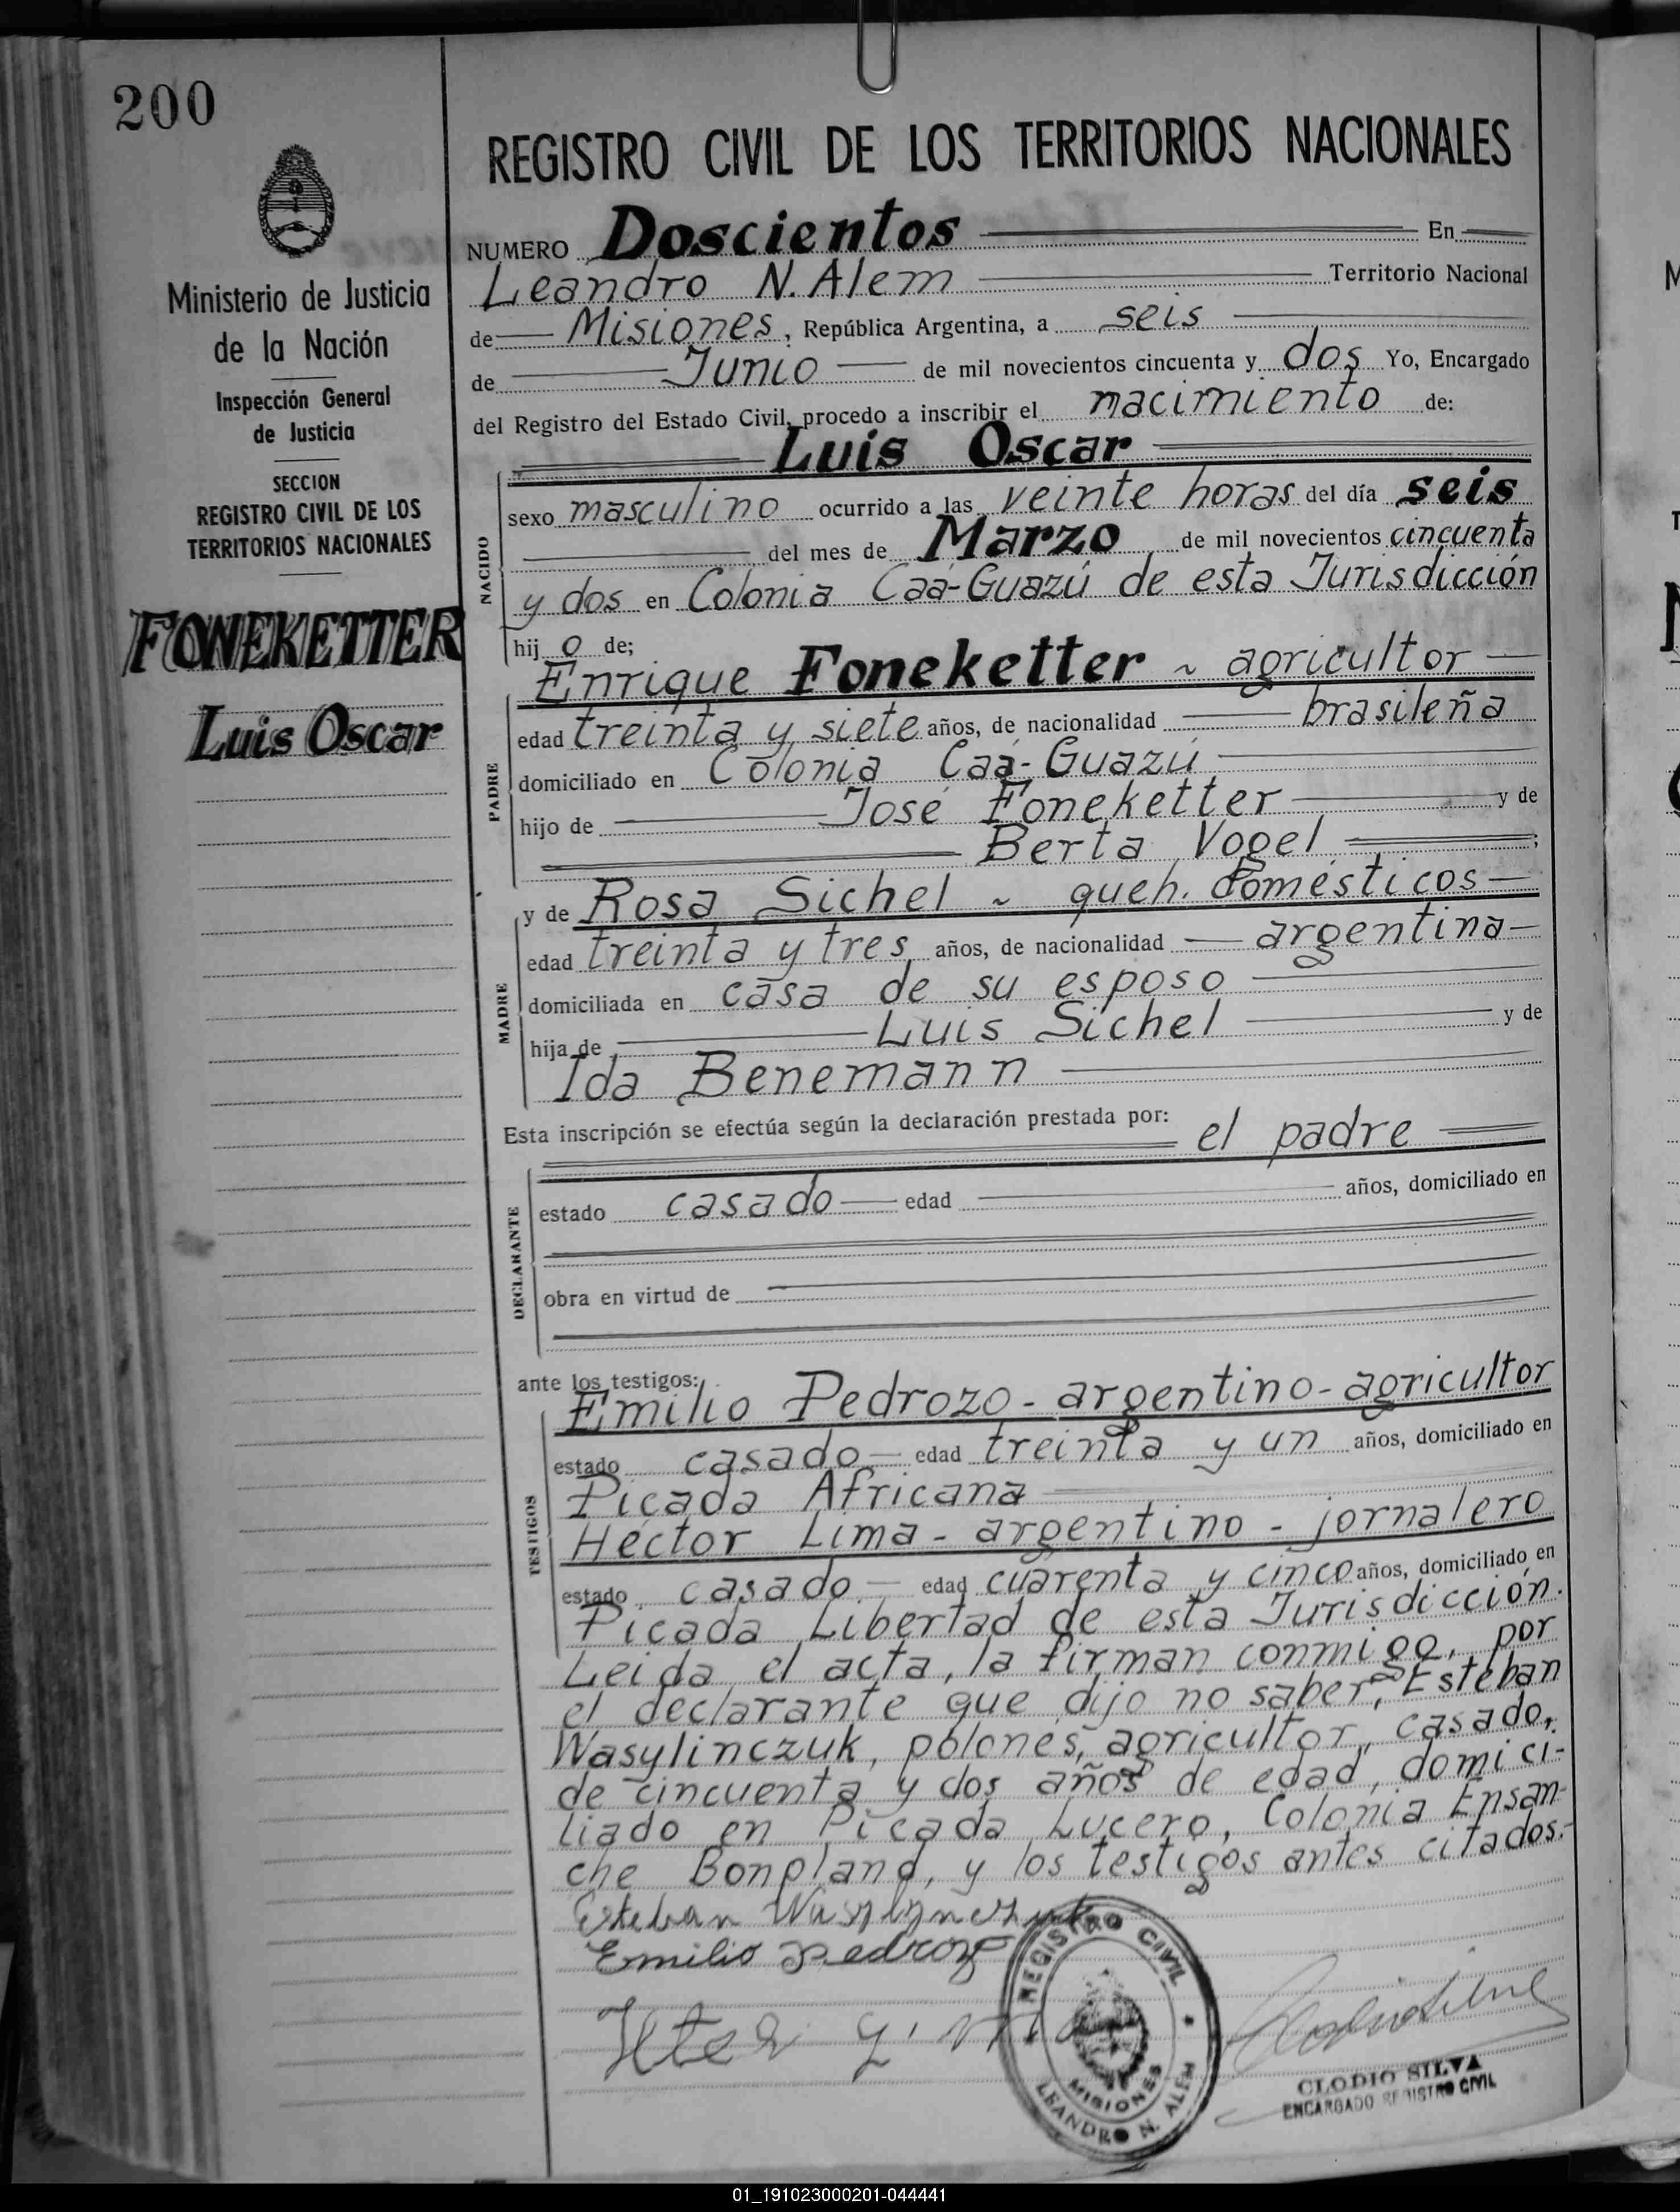 200
Ministerio de Justicia
de la Nación
Inspección General
de Justicia
SECCION
REGISTRO CIVIL DE LOS
TERRITORIOS NACIONALES
FONEKETTER
Luis Oscar
REGISTRO CIVIL DE LOS TERRITORIOS NACIONALES
NUMERO Doscientos En
Leandro N. Alem Territorio Nacional
de Misiones, República Argentina, a seis
de Junio de mil novecientos cincuenta y dos Yo, Encargado
del Registro del Estado Civil, procedo a inscribir el nacimiento de:
Luis Oscar
NACIDO
sexo masculino ocurrido a las veinte horas del día seis
del mes de Marzo de mil novecientos cincuenta
y dos en Colonia Caá-Guazú de esta Jurisdicción
hij o de;
PADRE
Enrique Foneketter ~ agricultor
edad treinta y siete años, de nacionalidad brasileña
domiciliado en Colonia Caá-Guazú
hijo de José Foneketter y de
Berta Vogel ;
MADRE
y de Rosa Sichel ~ queh. domésticos
edad treinta y tres años, de nacionalidad argentina
domiciliada en casa de su esposo
hija de Luis Sichel y de
Ida Benemann
Esta inscripción se efectúa según la declaración prestada por: el padre
DECLARANTE
estado casado edad años, domiciliado en
obra en virtud de
ante los testigos:
TESTIGOS
Emilio Pedrozo - argentino - agricultor
estado casado edad treinta y un años, domiciliado en
Picada Africana
Héctor Lima - argentino - jornalero
estado casado edad cuarenta y cinco años, domiciliado en
Picada Libertad de esta Jurisdicción.
Leida el acta, la firman conmigo, por
el declarante que dijo no saber, Esteban
Wasylinczuk, polonés, agricultor, casado,
de cincuenta y dos años de edad, domici-
liado en Picada Lucero, Colonia Ensan-
che Bonpland, y los testigos antes citados.-
Esteban Wasylynczuk
Emilio Pedrozo
REGISTRO CIVIL
MISIONES
LEANDRO N. ALEM
CLODIO SILVA
ENCARGADO REGISTRO CIVIL
01_191023000201-044441